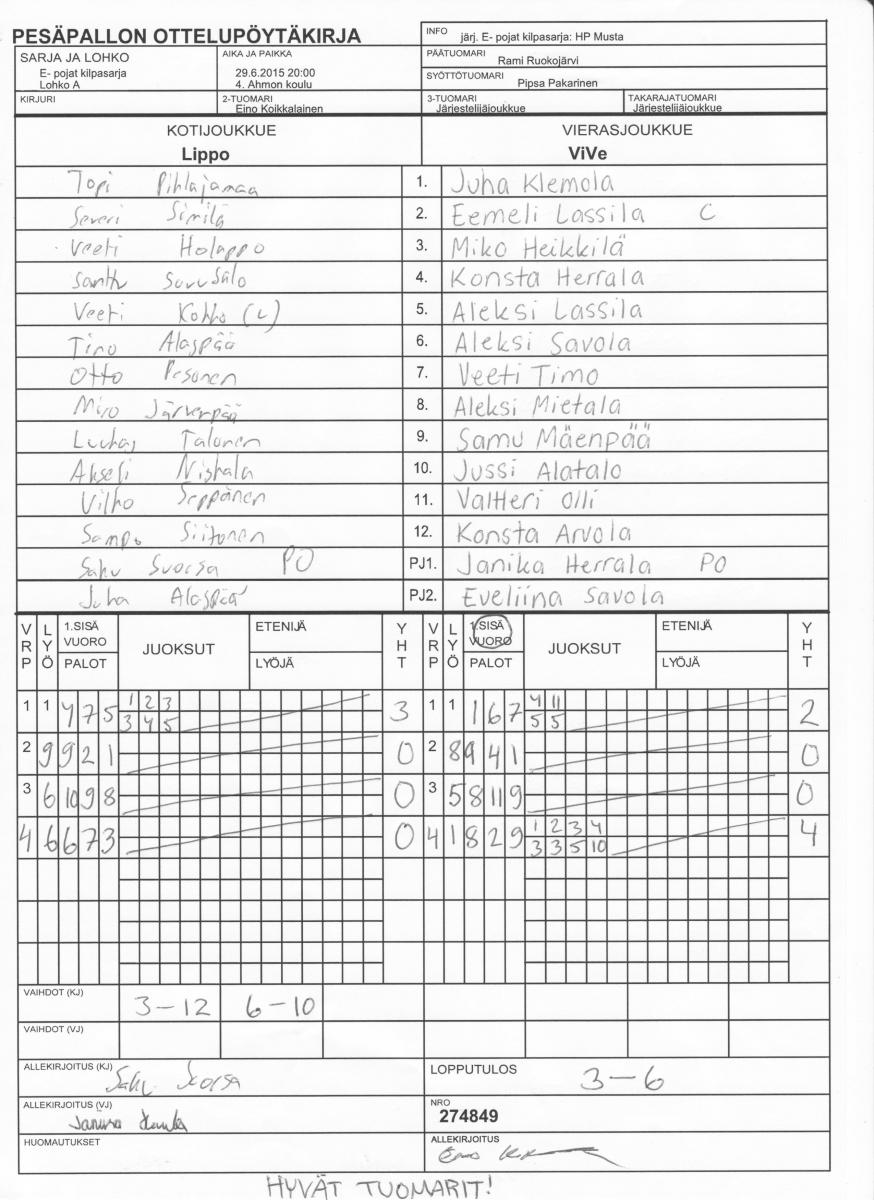 PESÄPALLON OTTELUPÖYTÄKIRJA
INFO järj. E- pojat kilpasarja: HP Musta
SARJA JA LOHKO
E- pojat kilpasarja
Lohko A
AIKA JA PAIKKA
29.6.2015 20:00
4. Ahmon koulu
PÄÄTUOMARI Rami Ruokojärvi
SYÖTTÖTUOMARI Pipsa Pakarinen
KIRJURI
2-TUOMARI Eino Koikkalainen
3-TUOMARI Järjestelijäjoukkue
TAKARAJATUOMARI Järjestelijäjoukkue
KOTIJOUKKUE VIERASJOUKKUE
Lippo ViVe
Topi Pihlajamaa 1. Juha Klemola
Severi Similä 2. Eemeli Lassila C
Veeti Holappo 3. Miko Heikkilä
Santtu Savusalo 4. Konsta Herrala
Veeti Kokko (L) 5. Aleksi Lassila
Timo Alaspää 6. Aleksi Savola
Otto Pesonen 7. Veeti Timo
Miro Järvenpää 8. Aleksi Mietala
Luukas Talonen 9. Samu Mäenpää
Akseli Niskala 10. Jussi Alatalo
Vilho Seppänen 11. Valtteri Olli
Sampo Siitonen 12. Konsta Arvola
Saku Suorsa PO PJ1. Janika Herrala PO
Juha Alaspää PJ2. Eveliina Savola
VRP LYÖ 1.SISÄ VUORO PALOT JUOKSUT ETENIJÄ LYÖJÄ YHT VRP LYÖ 1.SISÄ VUORO PALOT JUOKSUT ETENIJÄ LYÖJÄ YHT
1 1 4 7 5 1 2 3 3 1 1 1 6 7 4 11 2
3 4 5 5 5
2 9 9 2 1 0 2 8 9 4 1 0
3 6 10 9 8 0 3 5 8 11 9 0
4 6 6 7 3 0 4 1 8 2 9 1 2 3 4 4
3 3 5 10
VAIHDOT (KJ) 3-12 6-10
VAIHDOT (VJ)
ALLEKIRJOITUS (KJ) Saku Suorsa LOPPUTULOS 3-6
ALLEKIRJOITUS (VJ) NRO 274849
HUOMAUTUKSET ALLEKIRJOITUS
HYVÄT TUOMARIT!